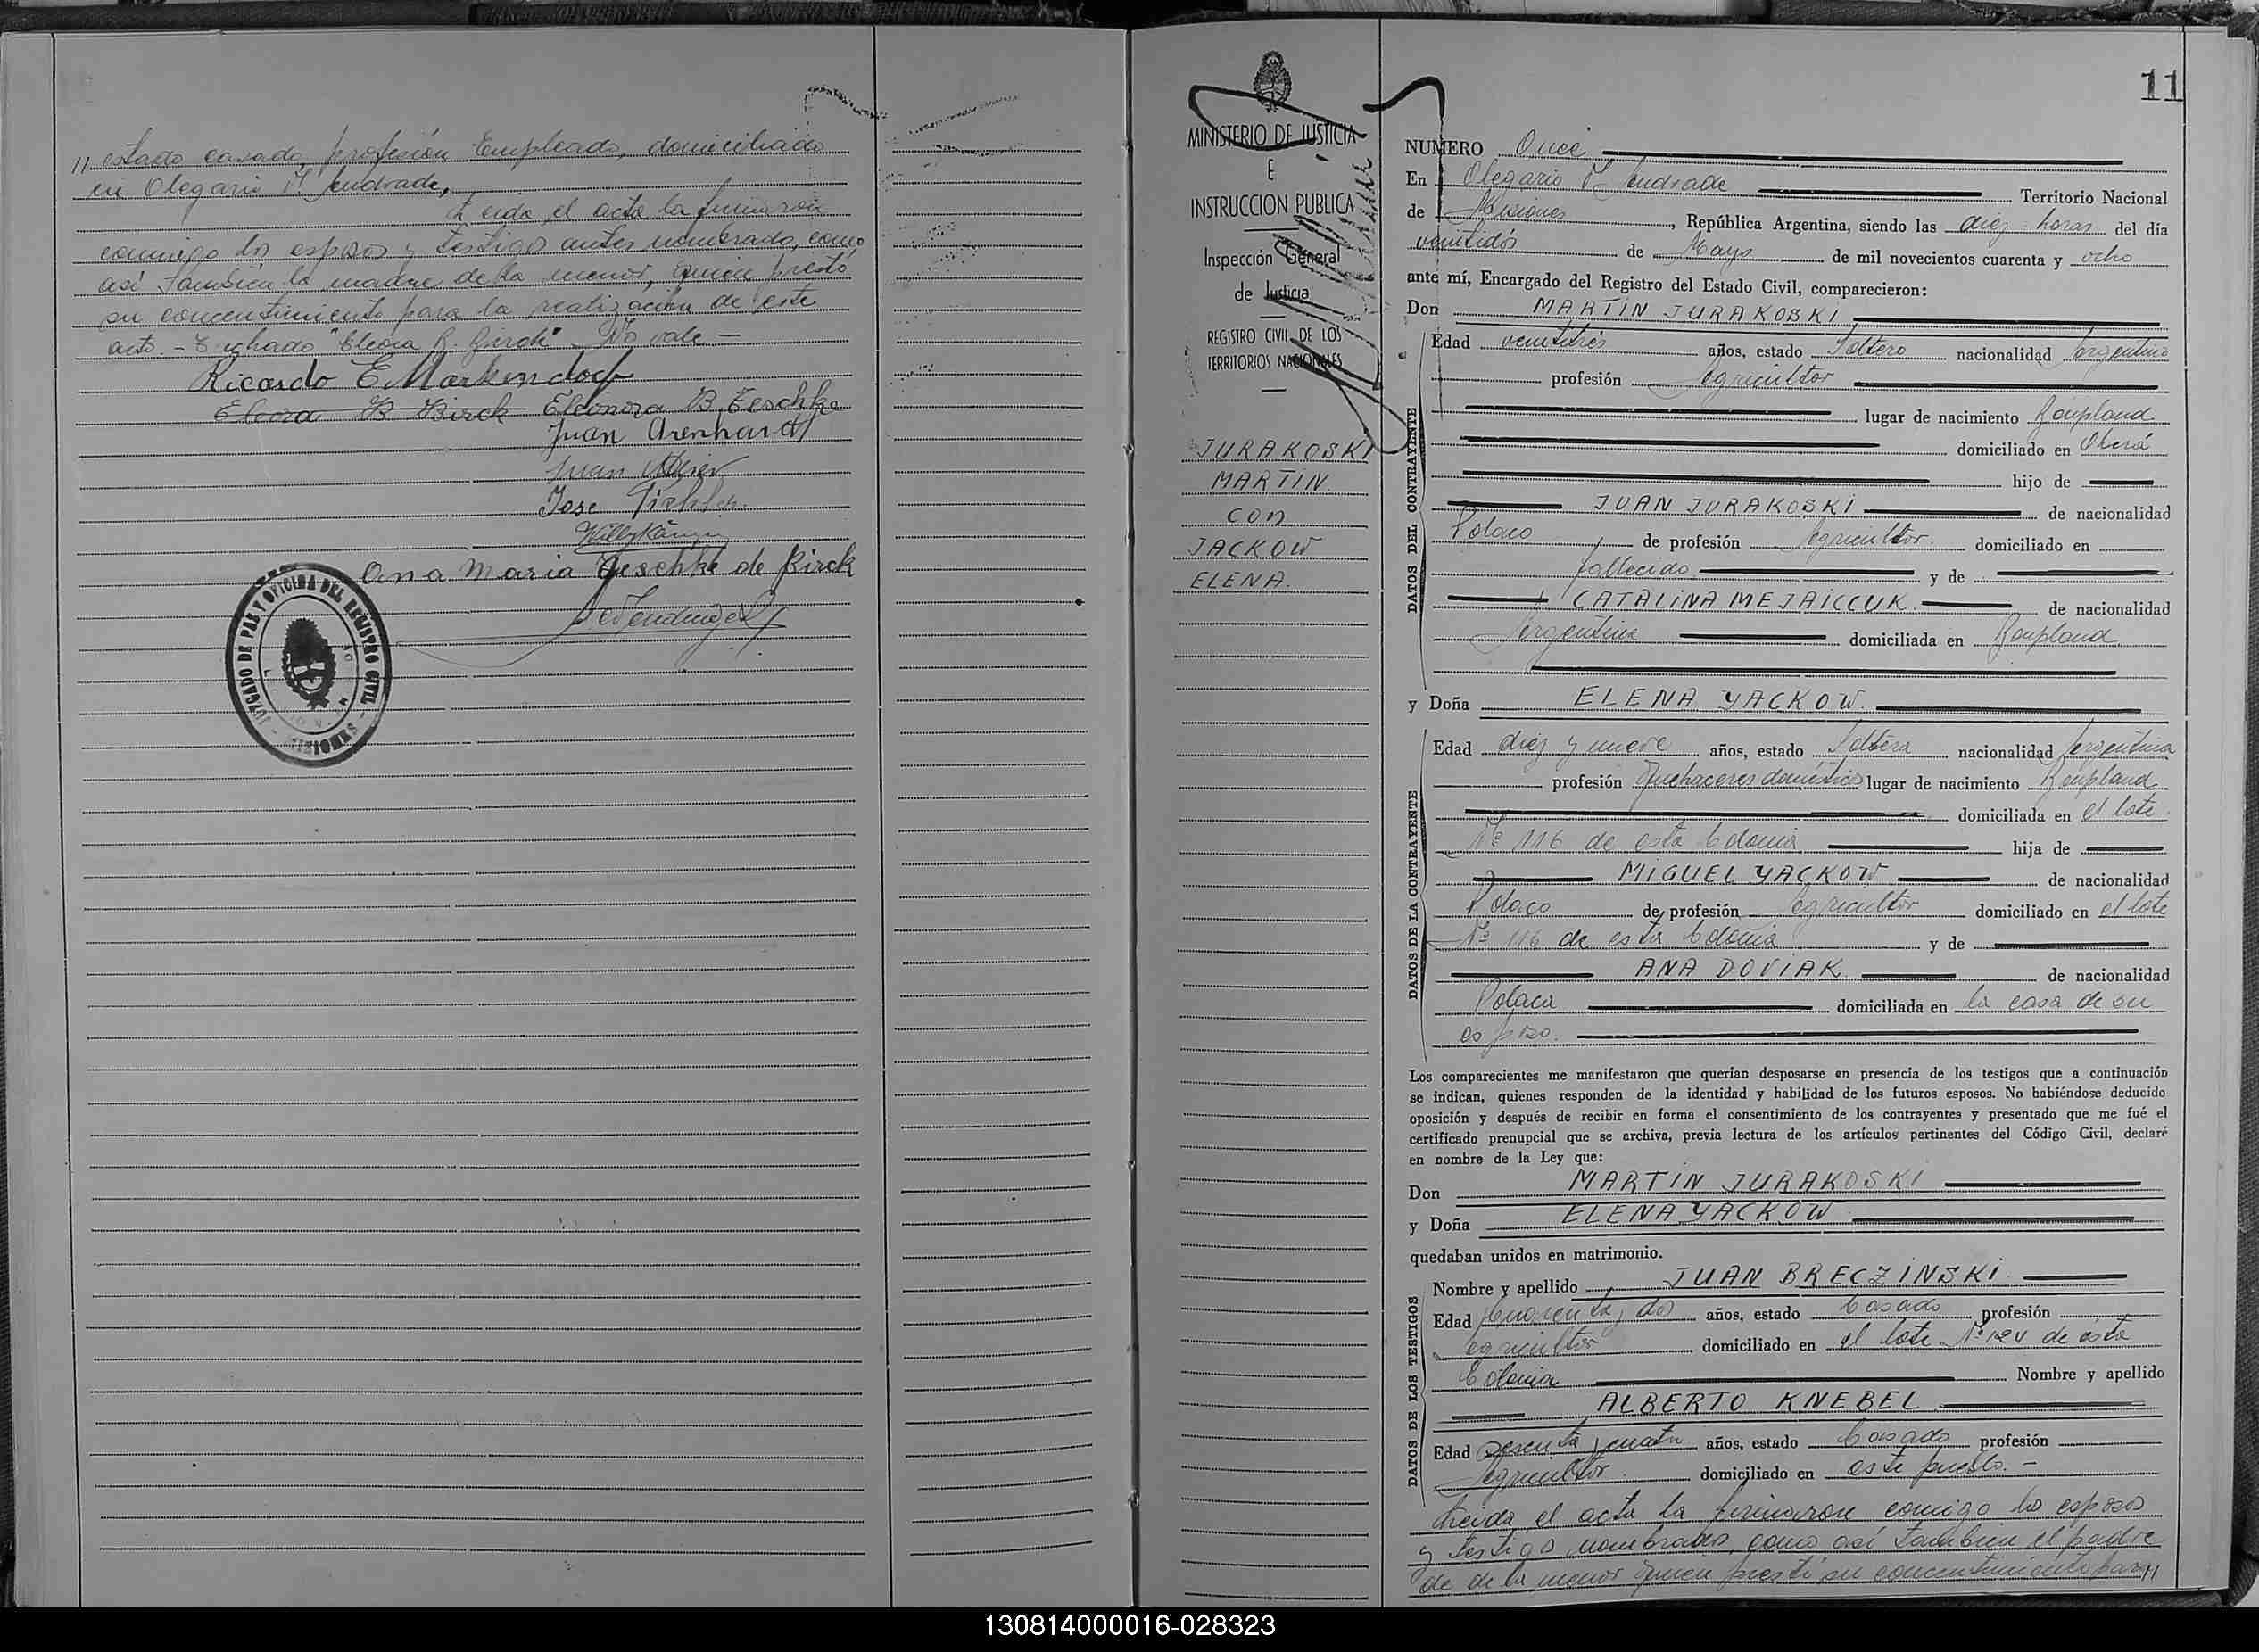 // estado casado, profesión Empleado, domiciliado
en Olegario V. Andrade,
Leida el acta la firmaron
conmigo los esposos y testigos antes nombrados, como
así también la madre de la menor, quien prestó
su concentimiento para la realización de este
acto. - Tachado "Eleora B. Birck" No vale -
Ricardo E Markendorf
Eleora B Birck Eleonora B. Geschke
Juan Arenhardt
Juan
Jose
Willy
Ana Maria Geschke de Birck
JUZGADO DE PAZ Y OFICINA DEL REGISTRO CIVIL
MISIONES
MINISTERIO DE JUSTICIA
E
INSTRUCCION PUBLICA
Inspección General
de Justicia
REGISTRO CIVIL DE LOS
TERRITORIOS NACIONALES
JURAKOSKI
MARTIN.
CON
JACKOW
ELENA.
11
NUMERO Once
En Olegario V. Andrade Territorio Nacional
de Misiones, República Argentina, siendo las diez horas del día
veintidós de Mayo de mil novecientos cuarenta y ocho
ante mí, Encargado del Registro del Estado Civil, comparecieron:
Don MARTIN JURAKOSKI
DATOS DEL CONTRAYENTE
Edad veintitrés años, estado Soltero nacionalidad Argentino
profesión Agricultor
lugar de nacimiento Bonpland
domiciliado en Oberá
hijo de
JUAN JURAKOSKI de nacionalidad
Polaco de profesión Agricultor domiciliado en
fallecido y de
CATALINA MEJAICCUK de nacionalidad
Argentina domiciliada en Bonpland
y Doña ELENA YACKOW.
DATOS DE LA CONTRAYENTE
Edad diez y nueve años, estado Soltera nacionalidad Argentina
profesión Quehaceres domésticos lugar de nacimiento Bonpland
domiciliada en el lote
Nº 116 de esta Colonia hija de
MIGUEL YACKOW de nacionalidad
Polaco de profesión Agricultor domiciliado en el lote
Nº 116 de esta Colonia y de
ANA DOVIAK de nacionalidad
Polaca domiciliada en la casa de su
esposo.
Los comparecientes me manifestaron que querían desposarse en presencia de los testigos que a continuación
se indican, quienes responden de la identidad y habilidad de los futuros esposos. No habiéndose deducido
oposición y después de recibir en forma el consentimiento de los contrayentes y presentado que me fué el
certificado prenupcial que se archiva, previa lectura de los artículos pertinentes del Código Civil, declaré
en nombre de la Ley que:
Don MARTIN JURAKOSKI
y Doña ELENA YACKOW
quedaban unidos en matrimonio.
DATOS DE LOS TESTIGOS
Nombre y apellido JUAN BRECZINSKI
Edad Cuarenta y dos años, estado Casado profesión
Agricultor domiciliado en el lote Nº 124 de ésta
Colonia Nombre y apellido
ALBERTO KNEBEL
Edad Sesenta y cuatro años, estado Casado profesión
Agricultor domiciliado en este pueblo. -
Leida el acta la firmaron comigo los esposos
y testigos nombrados, como así también el padre
de de la menor quien prestó su concentimiento para //
130814000016-028323